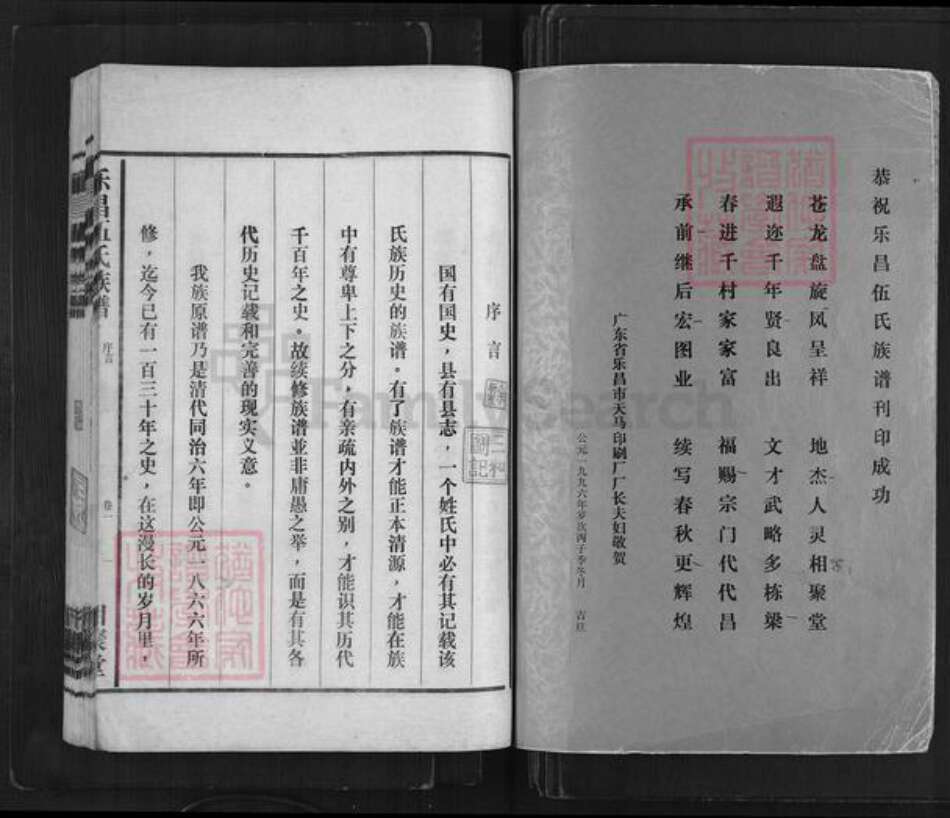 恭祝乐昌伍氏族谱刊印成功
苍龙盘旋凤呈祥 地杰人灵相聚堂
遐迩千年贤良出 文才武略多栋梁
春进千村家家富 福赐宗门代代昌
承前继后宏图业 续写春秋更辉煌
广东省乐昌市天马印刷厂厂长夫妇敬贺
公元一九九六年岁次丙子季冬月 吉旦
序言
国有国史，县有县志，一个姓氏中必有其记载该
氏族历史的族谱。有了族谱才能正本清源，才能在族
中有尊卑上下之分，有亲疏内外之别，才能识其历代
千百年之史。故续修族谱並非庸愚之举，而是有其各
代历史记载和完善的现实义意。
我族原谱乃是清代同治六年即公元一八六六年所
修，迄今已有一百三十年之史，在这漫长的岁月里，
乐昌伍氏族谱 序言 卷一
FamilySearch